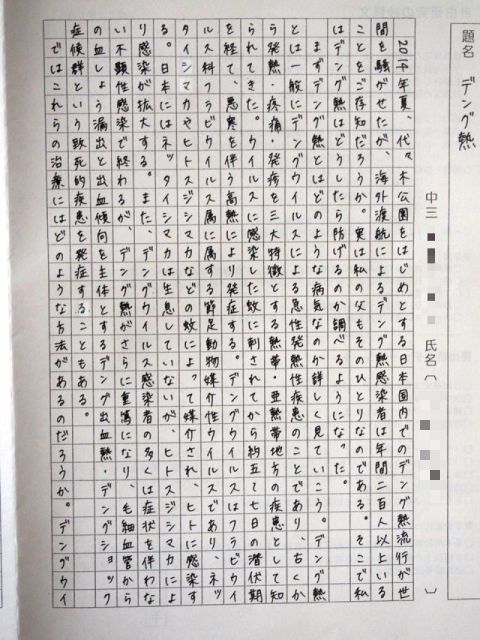 題名　デング熱
中三　氏名〔　〕
2014年夏、代々木公園をはじめとする日本国内でのデング熱流行が世
間を騒がせたが、海外渡航によるデング熱感染者は年間二百人以上いる
ことをご存知だろうか。実は私の父もそのひとりなのである。そこで私
はデング熱はどうしたら防げるのか調べることになった。
まずデング熱とはどのような病気なのか詳しく見ていこう。デング熱
とは一般にデングウイルスによる急性熱性疾患のことであり、古くか
ら発熱・疼痛・発疹を三大特徴とする熱帯・亜熱帯地方の疾患として知
られてきた。ウイルスに感染した蚊に刺されてから約五〜七日の潜伏期
を経て、悪寒を伴う高熱により発症する。デングウイルスはフラビウイ
ルス科フラビウイルス属に属する節足動物媒介性ウイルスであり、ネッ
タイシマカやヒトスジシマカなどの蚊によって媒介され、ヒトに感染す
る。日本にはネッタイシマカは生息していないが、ヒトスジシマカによ
り感染が拡大する。また、デングウイルス感染者の多くは症状を伴わな
い不顕性感染で終わるが、デング熱がさらに重篤になり、毛細血管から
の血しょう漏出と出血傾向を主体とするデング出血熱・デングショック
症候群という致死的な疾患を発症することもある。
ではこれらの治療にはどのような方法があるのだろうか。デングウイ